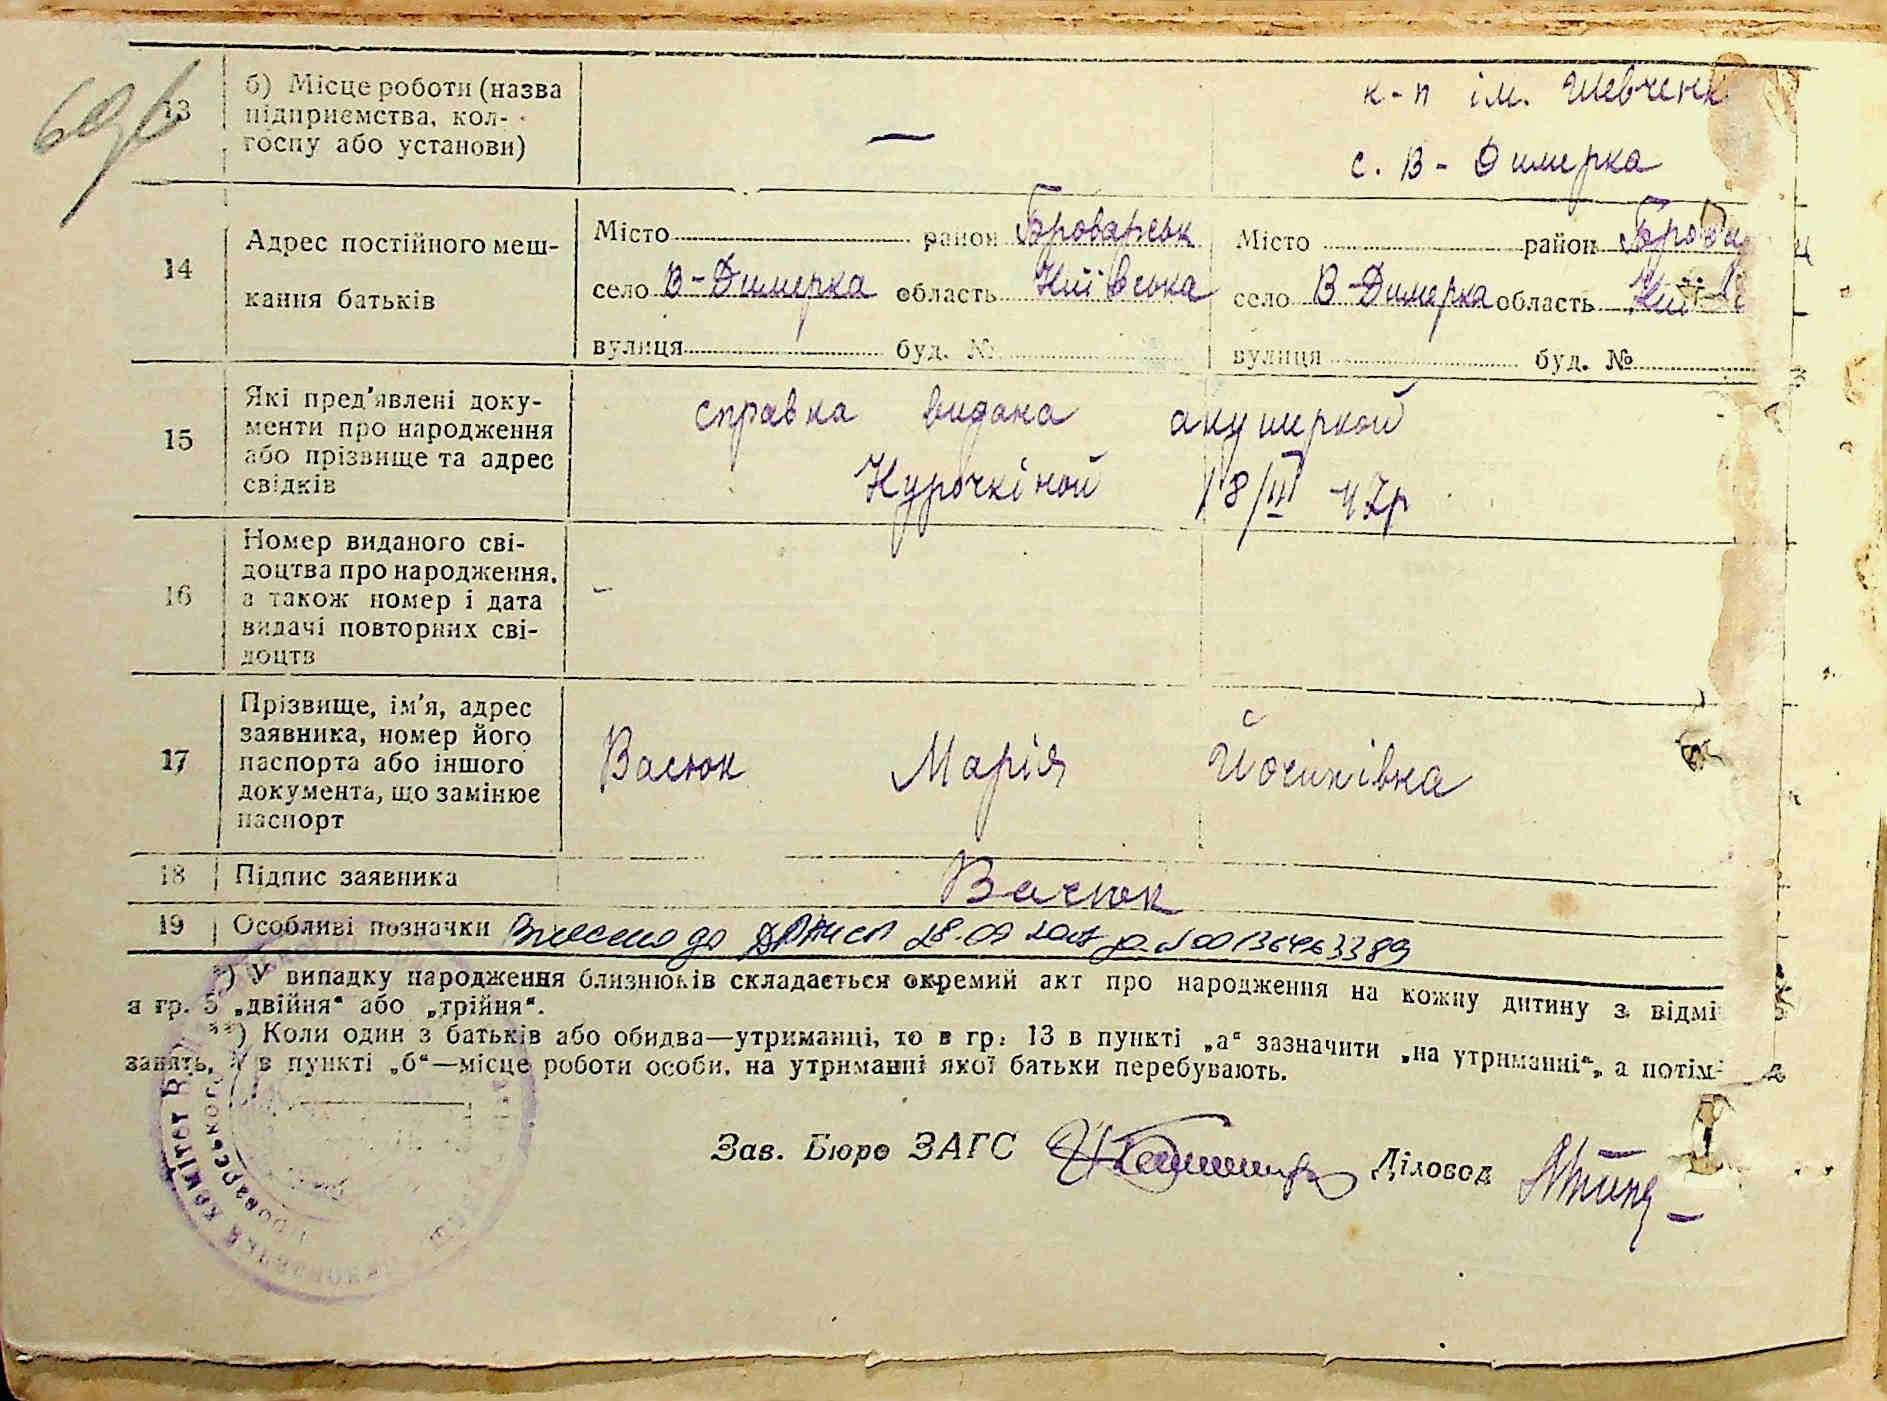 13 б) Місце роботи (назва підприємства, колгоспу або установи) — к-п ім. Шевченк
с. В-Димерка
14 Адрес постійного мешкання батьків
Місто район Броварськ Місто район Бров
село В-Димерка область Київська село В-Димерка область Киї
вулиця буд. № вулиця буд. №
15 Які пред'явлені документи про народження або прізвище та адрес свідків
справка видана акушеркой
Курочкіной 18/III 47р
16 Номер виданого свідоцтва про народження, а також номер і дата видачі повторних свідоцтв –
17 Прізвище, ім'я, адрес заявника, номер його паспорта або іншого документа, що замінює паспорт
Васюк Марія Йосипівна
18 Підпис заявника Васюк
19 Особливі позначки Внесено до 28.09 № 00136463389
*) У випадку народження близнюків складається окремий акт про народження на кожну дитину з відмі
в гр. 5 „двійня“ або „трійня“.
**) Коли один з батьків або обидва—утриманці, то в гр. 13 в пункті „а“ зазначити „на утриманні“, а потім
занять, у в пункті „б“—місце роботи особи, на утриманні якої батьки перебувають.
Зав. Бюро ЗАГС Діловод